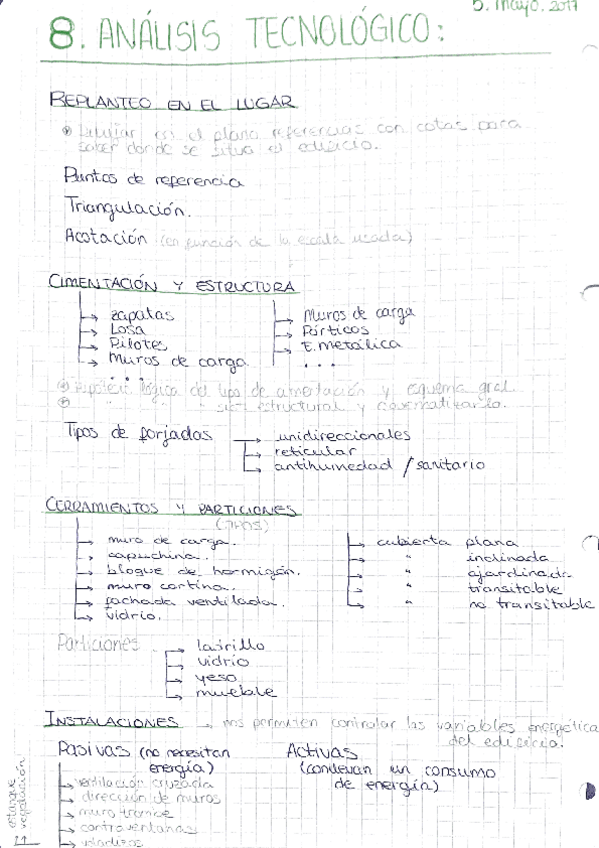 5. mayo. 2017
8. ANÁLISIS TECNOLÓGICO:
REPLANTEO EN EL LUGAR
en el plano referencias con cotas para
saber dónde se situa el edificio.
Puntos de referencia
Triangulación.
Acotación (en función de la escala usada)
CIMENTACIÓN Y ESTRUCTURA
→ zapatas → Muros de carga
→ Losa → Pórticos
→ Pilotes → E. metálica
→ Muros de carga. . . .
. . .
lógica del tipo de cimentación y esquema gral
" " " estructural y
Tipos de forjados → unidireccionales
→ reticular
→ antihumedad / sanitario
CERRAMIENTOS Y PARTICIONES
(TIPOS)
→ muro de carga. → cubierta plana
→ capuchina. → " inclinada
→ bloque de hormigón. → " ajardinada
→ muro cortina. → " transitable
→ fachada ventilada. → " no transitable
→ vidrio.
Particiones → ladrillo
→ vidrio
→ yeso
→ mueble
INSTALACIONES → nos permiten controlar las variables energética
del edificio.
Pasivas (no necesitan Activas
energía) (conllevan un consumo
→ ventilación cruzada de energía)
→ dirección de muros
→ muro trombe
→ contraventanas
vegetación